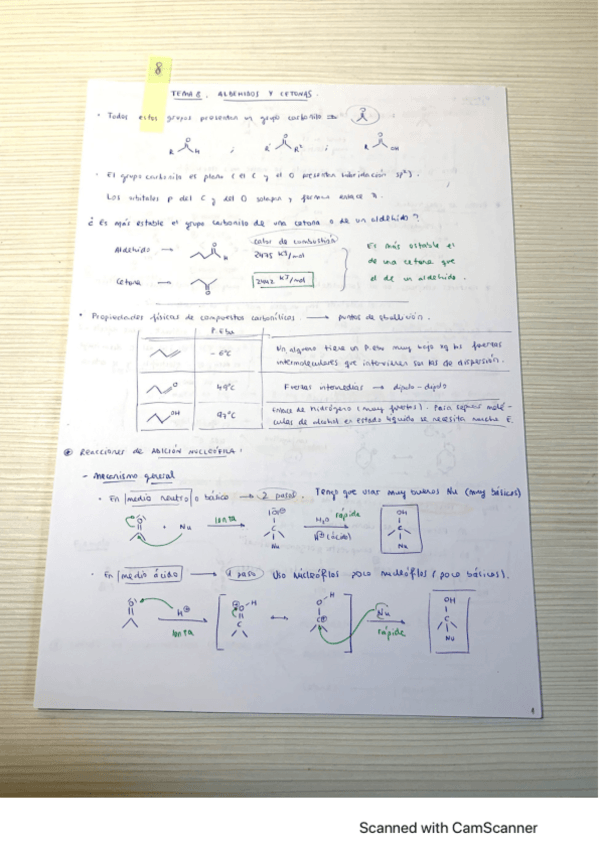 8
TEMA 8. ALDEHIDOS Y CETONAS.
· Todos estos grupos presentan un grupo carbonilo
R H ; R¹ R² ; R OH
· El grupo carbonilo es plano (el C y el O presentan hibridación sp²).
Los orbitales p del C y del O solapan y forman enlace
¿Es más estable el grupo carbonilo de una cetona o de un aldehído?
calor de combustión
Aldehído → 2475 KJ/mol
Cetona → 2442 KJ/mol
Es más estable el
de una cetona que
el de un aldehído.
• Propiedades físicas de compuestos carbonílicos → puntos de
P. Ebu
-6°C
Un alqueno tiene un P. ebu muy bajo las fuerzas
intermoleculares que intervienen son las de dispersión.
49°C
Fuerzas intermedias → dipolo-dipolo
OH 97°C
Enlace de hidrógeno (muy fuertes). Para separar molé-
culas de alcohol en estado líquido se necesita mucha E.
REACCIONES DE ADICIÓN NUCLEÓFILA:
- Mecanismo general
· En medio neutro o básico → 2 pasos. Tengo que usar muy buenos Nu (muy básicos)
O + Nu lenta O C Nu H₂O H⊕ (ácido) rápida OH C Nu
· En medio ácido → 1 paso Uso nucleófilos poco nucleófilos (poco básicos).
O H⊕ lenta O H C ↔ O H C⊕ Nu rápida OH C Nu
1
Scanned with CamScanner